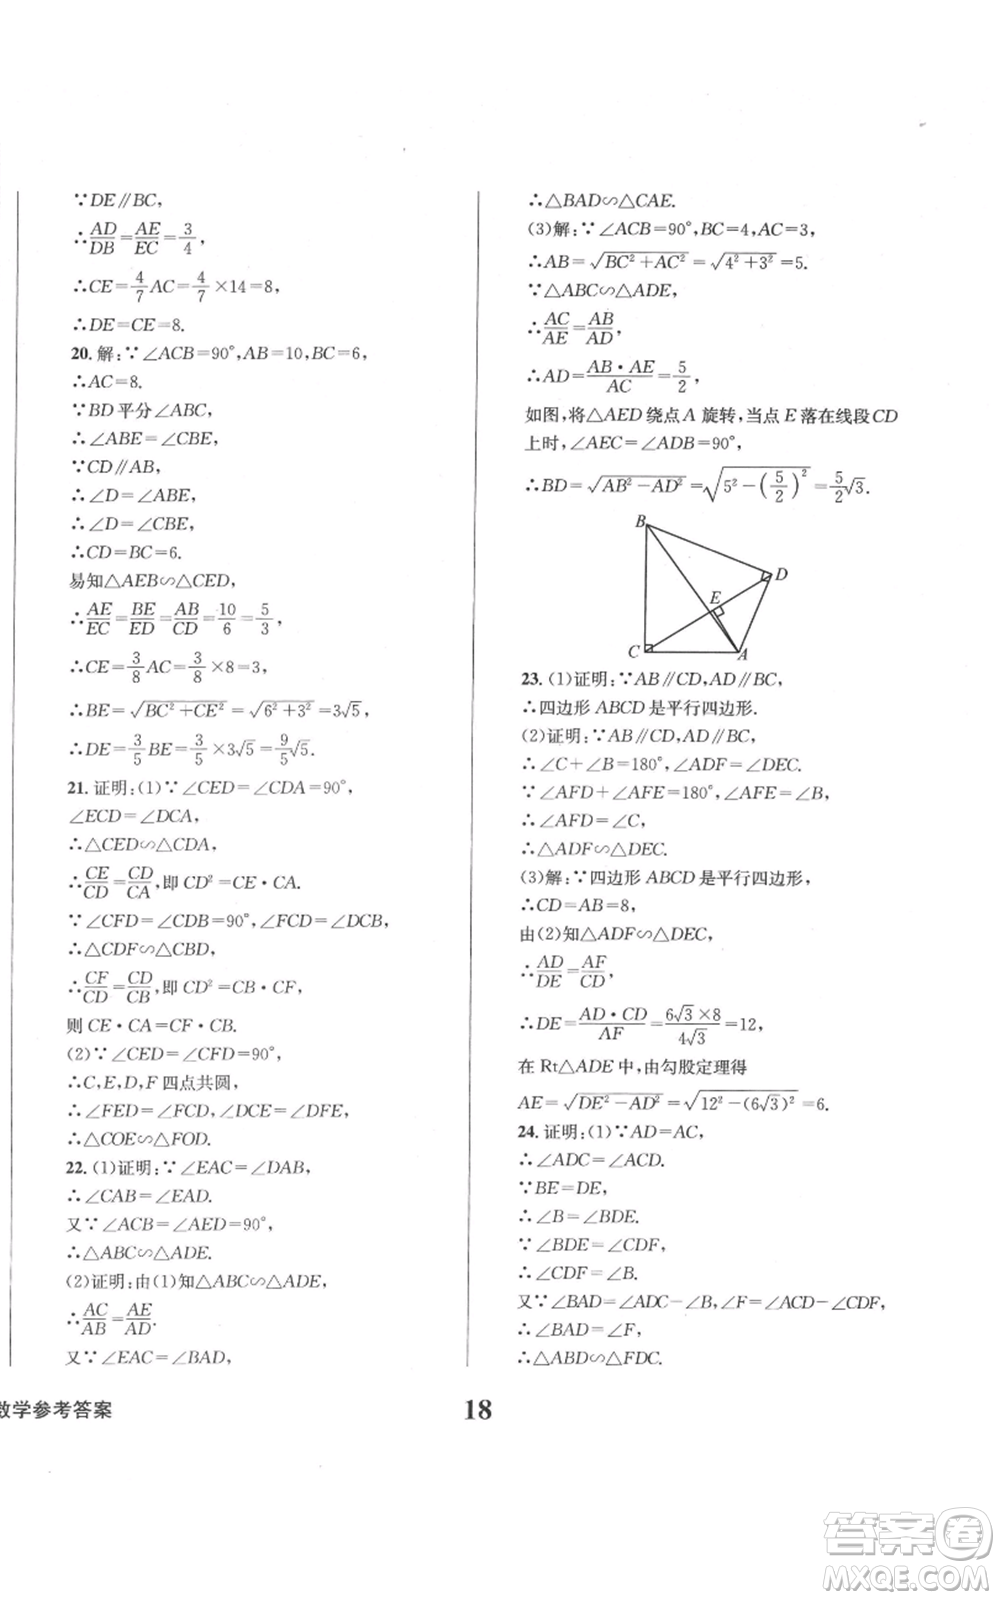 ∵DE∥BC,
∴AD/DB=AE/EC=3/4,
∴CE=4/7AC=4/7×14=8,
∴DE=CE=8.
20.解:∵∠ACB=90°,AB=10,BC=6,
∴AC=8.
∵BD平分∠ABC,
∴∠ABE=∠CBE,
∵CD∥AB,
∴∠D=∠ABE,
∴∠D=∠CBE,
∴CD=BC=6.
易知△AEB∽△CED,
∴AE/EC=BE/ED=AB/CD=10/6=5/3,
∴CE=3/8AC=3/8×8=3,
∴BE=√(BC²+CE²)=√(6²+3²)=3√5,
∴DE=3/5BE=3/5×3√5=9/5√5.
21.证明:(1)∵∠CED=∠CDA=90°,
∠ECD=∠DCA,
∴△CED∽△CDA,
∴CE/CD=CD/CA,即CD²=CE·CA.
∵∠CFD=∠CDB=90°,∠FCD=∠DCB,
∴△CDF∽△CBD,
∴CF/CD=CD/CB,即CD²=CB·CF,
则CE·CA=CF·CB.
(2)∵∠CED=∠CFD=90°,
∴C,E,D,F四点共圆,
∴∠FED=∠FCD,∠DCE=∠DFE,
∴△COE∽△FOD.
22.(1)证明:∵∠EAC=∠DAB,
∴∠CAB=∠EAD.
又∵∠ACB=∠AED=90°,
∴△ABC∽△ADE.
(2)证明:由(1)知△ABC∽△ADE,
∴AC/AB=AE/AD.
又∵∠EAC=∠BAD,
∴△BAD∽△CAE.
(3)解:∵∠ACB=90°,BC=4,AC=3,
∴AB=√(BC²+AC²)=√(4²+3²)=5.
∵△ABC∽△ADE,
∴AC/AE=AB/AD,
∴AD=AB·AE/AC=5/2,
如图,将△AED绕点A旋转,当点E落在线段CD
上时,∠AEC=∠ADB=90°,
∴BD=√(AB²-AD²)=√(5²-(5/2)²)=5/2√3.
B
D
E
C
A
23.(1)证明:∵AB∥CD,AD∥BC,
∴四边形ABCD是平行四边形.
(2)证明:∵AB∥CD,AD∥BC,
∴∠C+∠B=180°,∠ADF=∠DEC.
∵∠AFD+∠AFE=180°,∠AFE=∠B,
∴∠AFD=∠C,
∴△ADF∽△DEC.
(3)解:∵四边形ABCD是平行四边形,
∴CD=AB=8,
由(2)知△ADF∽△DEC,
∴AD/DE=AF/CD,
∴DE=AD·CD/AF=6√3×8/4√3=12,
在Rt△ADE中,由勾股定理得
AE=√(DE²-AD²)=√(12²-(6√3)²)=6.
24.证明:(1)∵AD=AC,
∴∠ADC=∠ACD.
∵BE=DE,
∴∠B=∠BDE.
∵∠BDE=∠CDF,
∴∠CDF=∠B.
又∵∠BAD=∠ADC-∠B,∠F=∠ACD-∠CDF,
∴∠BAD=∠F,
∴△ABD∽△FDC.
数学参考答案
18
答案卷
MXQE.COM